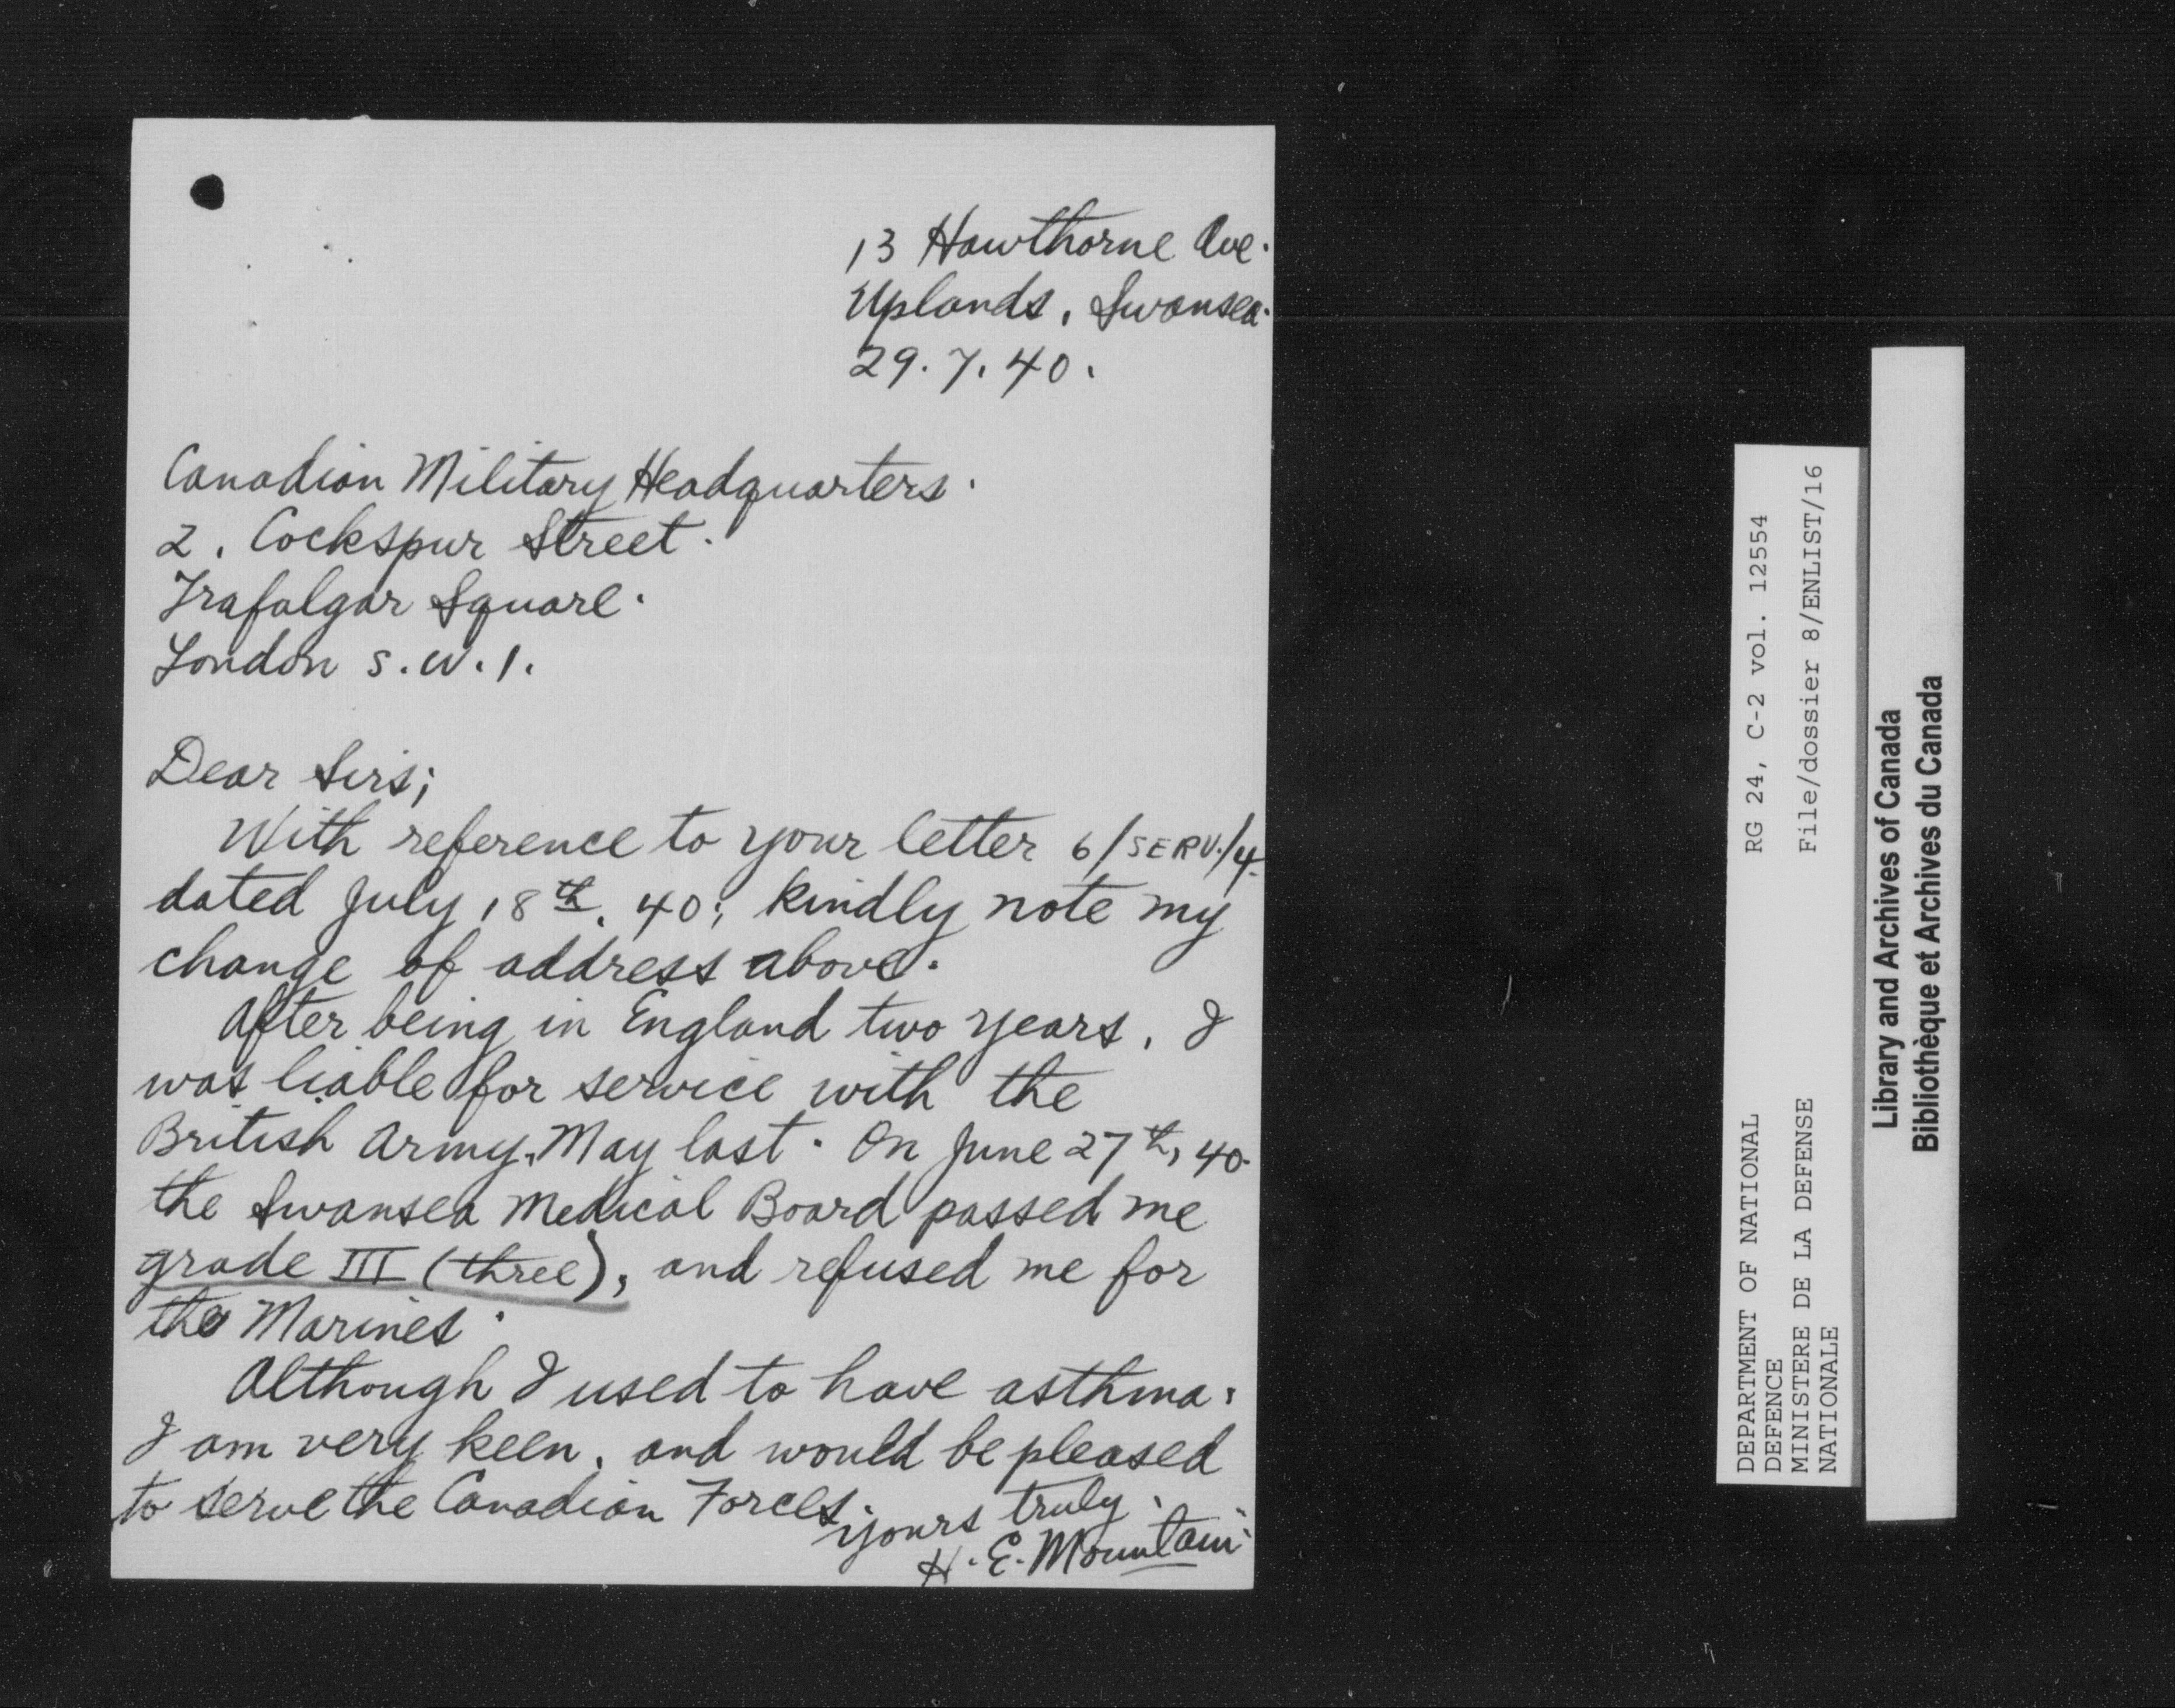 13 Hawthorne Ave.
Uplands, Swansea.
29.7.40.
Canadian Military Headquarters.
2, Cockspur Street.
Trafalgar Square.
London S.W.1.
Dear Sirs;
With reference to your letter 6/SERV./4.
dated July 18th, 40; kindly note my
change of address above.
After being in England two years, I
was liable for service with the
British Army, May last. On June 27th, 40.
the Swansea Medical Board passed me
grade III (three), and refused me for
the Marines.
Although I used to have asthma,
I am very keen, and would be pleased
to serve the Canadian Forces.
Yours truly,
H. E. Mountain
RG 24, C-2 vol. 12554
File/dossier 8/ENLIST/16
DEPARTMENT OF NATIONAL
DEFENCE
MINISTERE DE LA DEFENSE
NATIONALE
Library and Archives of Canada
Bibliothèque et Archives du Canada